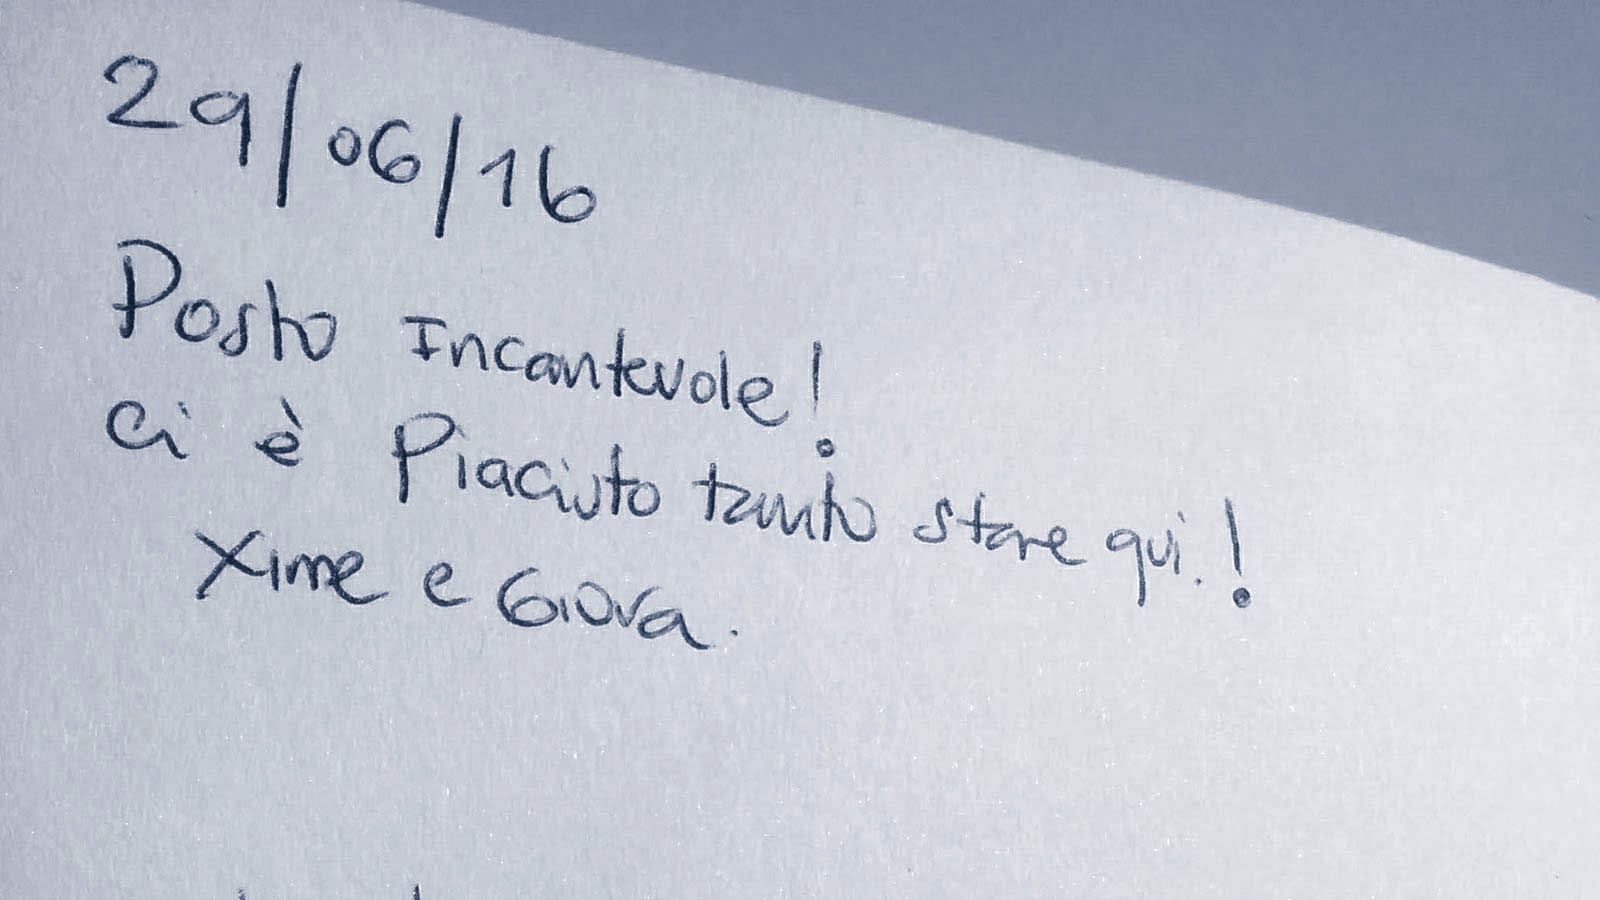 29/06/16
Posto Incantevole!
Ci è Piaciuto tanto stare qui!
Xime e Giova.